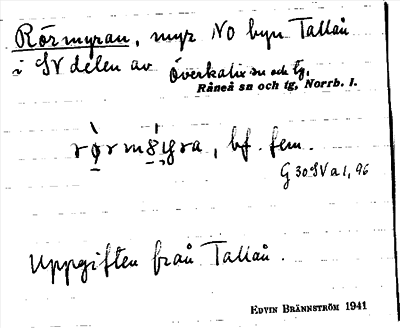 Rörmyran, myr NO byn Tallån
i SV delen av Överkalix sn och tg.
Råneå sn och tg, Norrb. l.
bf. fem.
G 30 SV a 1, 96
Uppgiften från Tallån.
EDVIN BRÄNNSTRÖM 1941